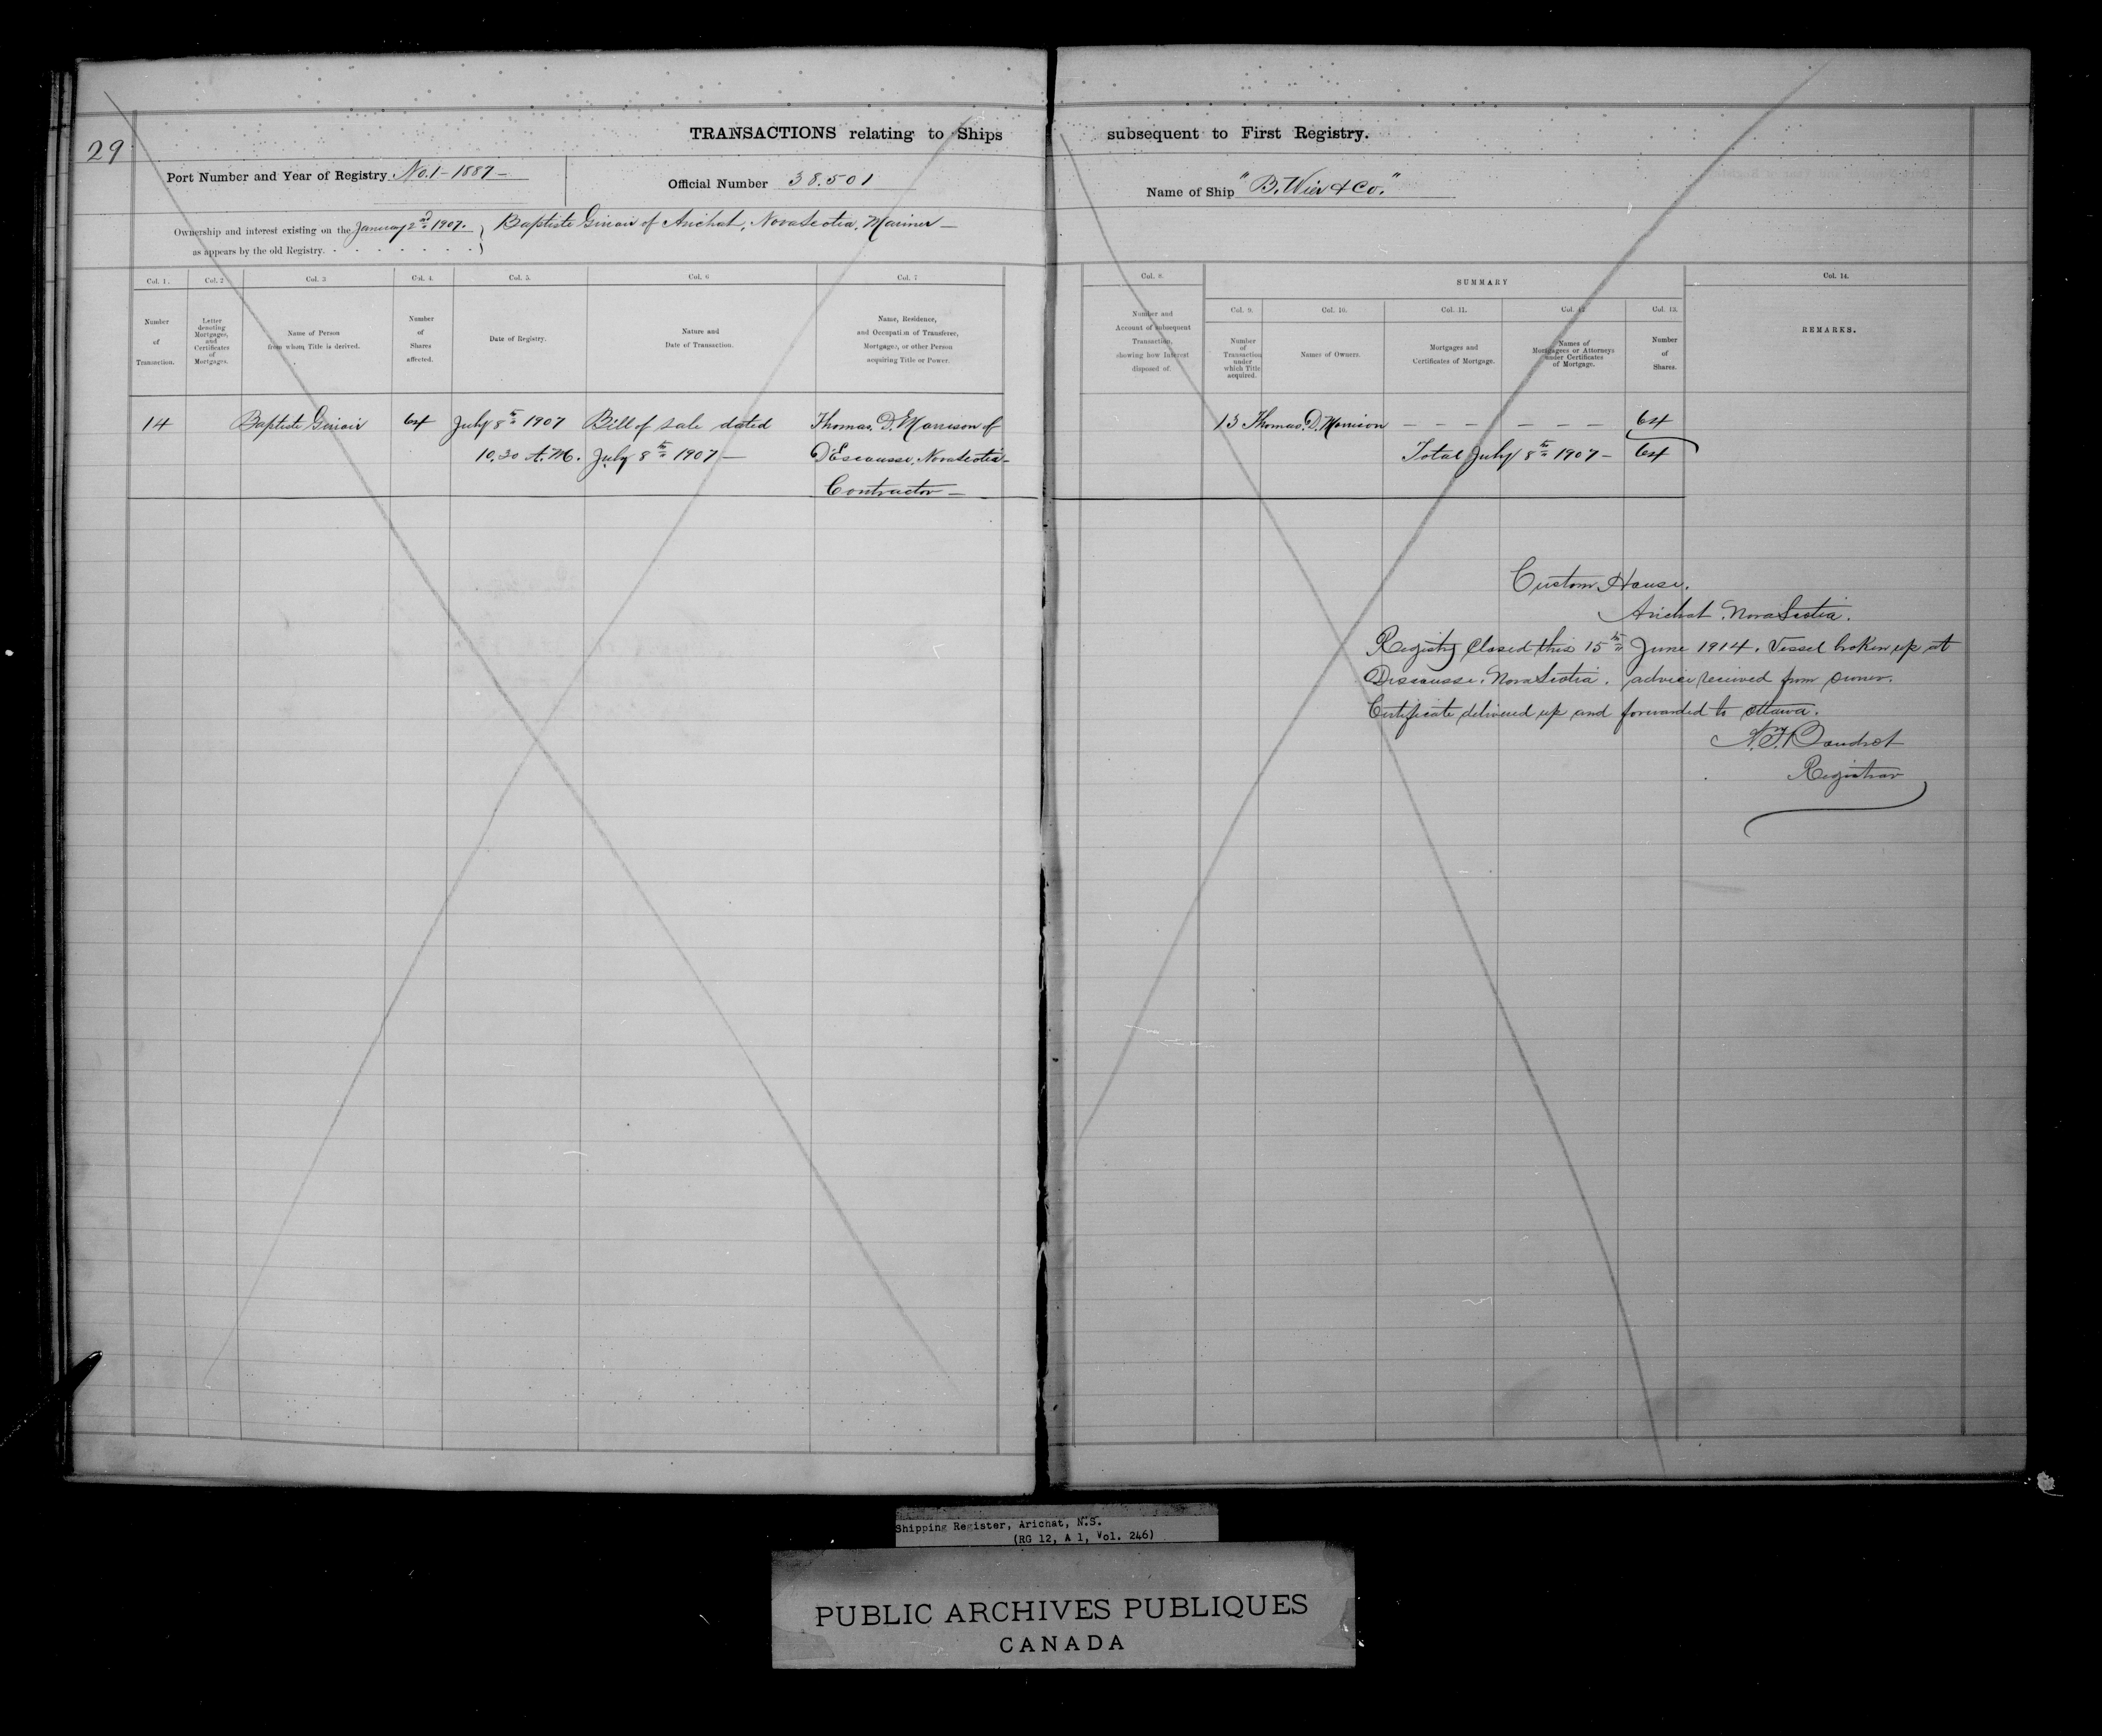 29
TRANSACTIONS relating to Ships subsequent to First Registry.
Port Number and Year of Registry. No. 1 - 1887 -
Official Number 38.501
Name of Ship "B. Wier & Co."
Ownership and interest existing on the January 2nd 1907. as appears by the old Registry.
Baptiste Giroir of Arichat, Nova Scotia, Mariner -
Col. 1. Col. 2 Col. 3 Col. 4. Col. 5. Col. 6 Col. 7
Number of Transaction.
Letter denoting Mortgages, and Certificates of Mortgages.
Name of Person from whom Title is derived.
Number of Shares affected.
Date of Registry.
Nature and Date of Transaction.
Name, Residence, and Occupation of Transferee, Mortgagee, or other Person acquiring Title or Power.
14 Baptiste Giroir 64 July 8th 1907 Bill of sale dated Thomas. D. Morrison of
10.30 A.M. July 8th 1907 - D'Escousse, Nova Scotia -
Contractor -
Col. 8. SUMMARY Col. 14.
Col. 9. Col. 10. Col. 11. Col. 12 Col. 13.
Number and Account of subsequent Transaction, showing how Interest disposed of.
Number of Transaction under which Title acquired.
Names of Owners.
Mortgages and Certificates of Mortgage.
Names of Mortgagees or Attorneys under Certificates of Mortgage.
Number of Shares.
REMARKS.
13 Thomas. D. Morrison - - - - - - - 64
Total July 8th 1907 - 64
Custom House.
Arichat. Nova Scotia.
Registry Closed this 15th June 1914. Vessel broken up at
Discousse. Nova Scotia. advice received from owner.
Certificate delivered up and forwarded to Ottawa.
Boudrot
Registrar
Shipping Register, Arichat, N.S.
(RG 12, A 1, Vol. 246)
PUBLIC ARCHIVES PUBLIQUES
CANADA